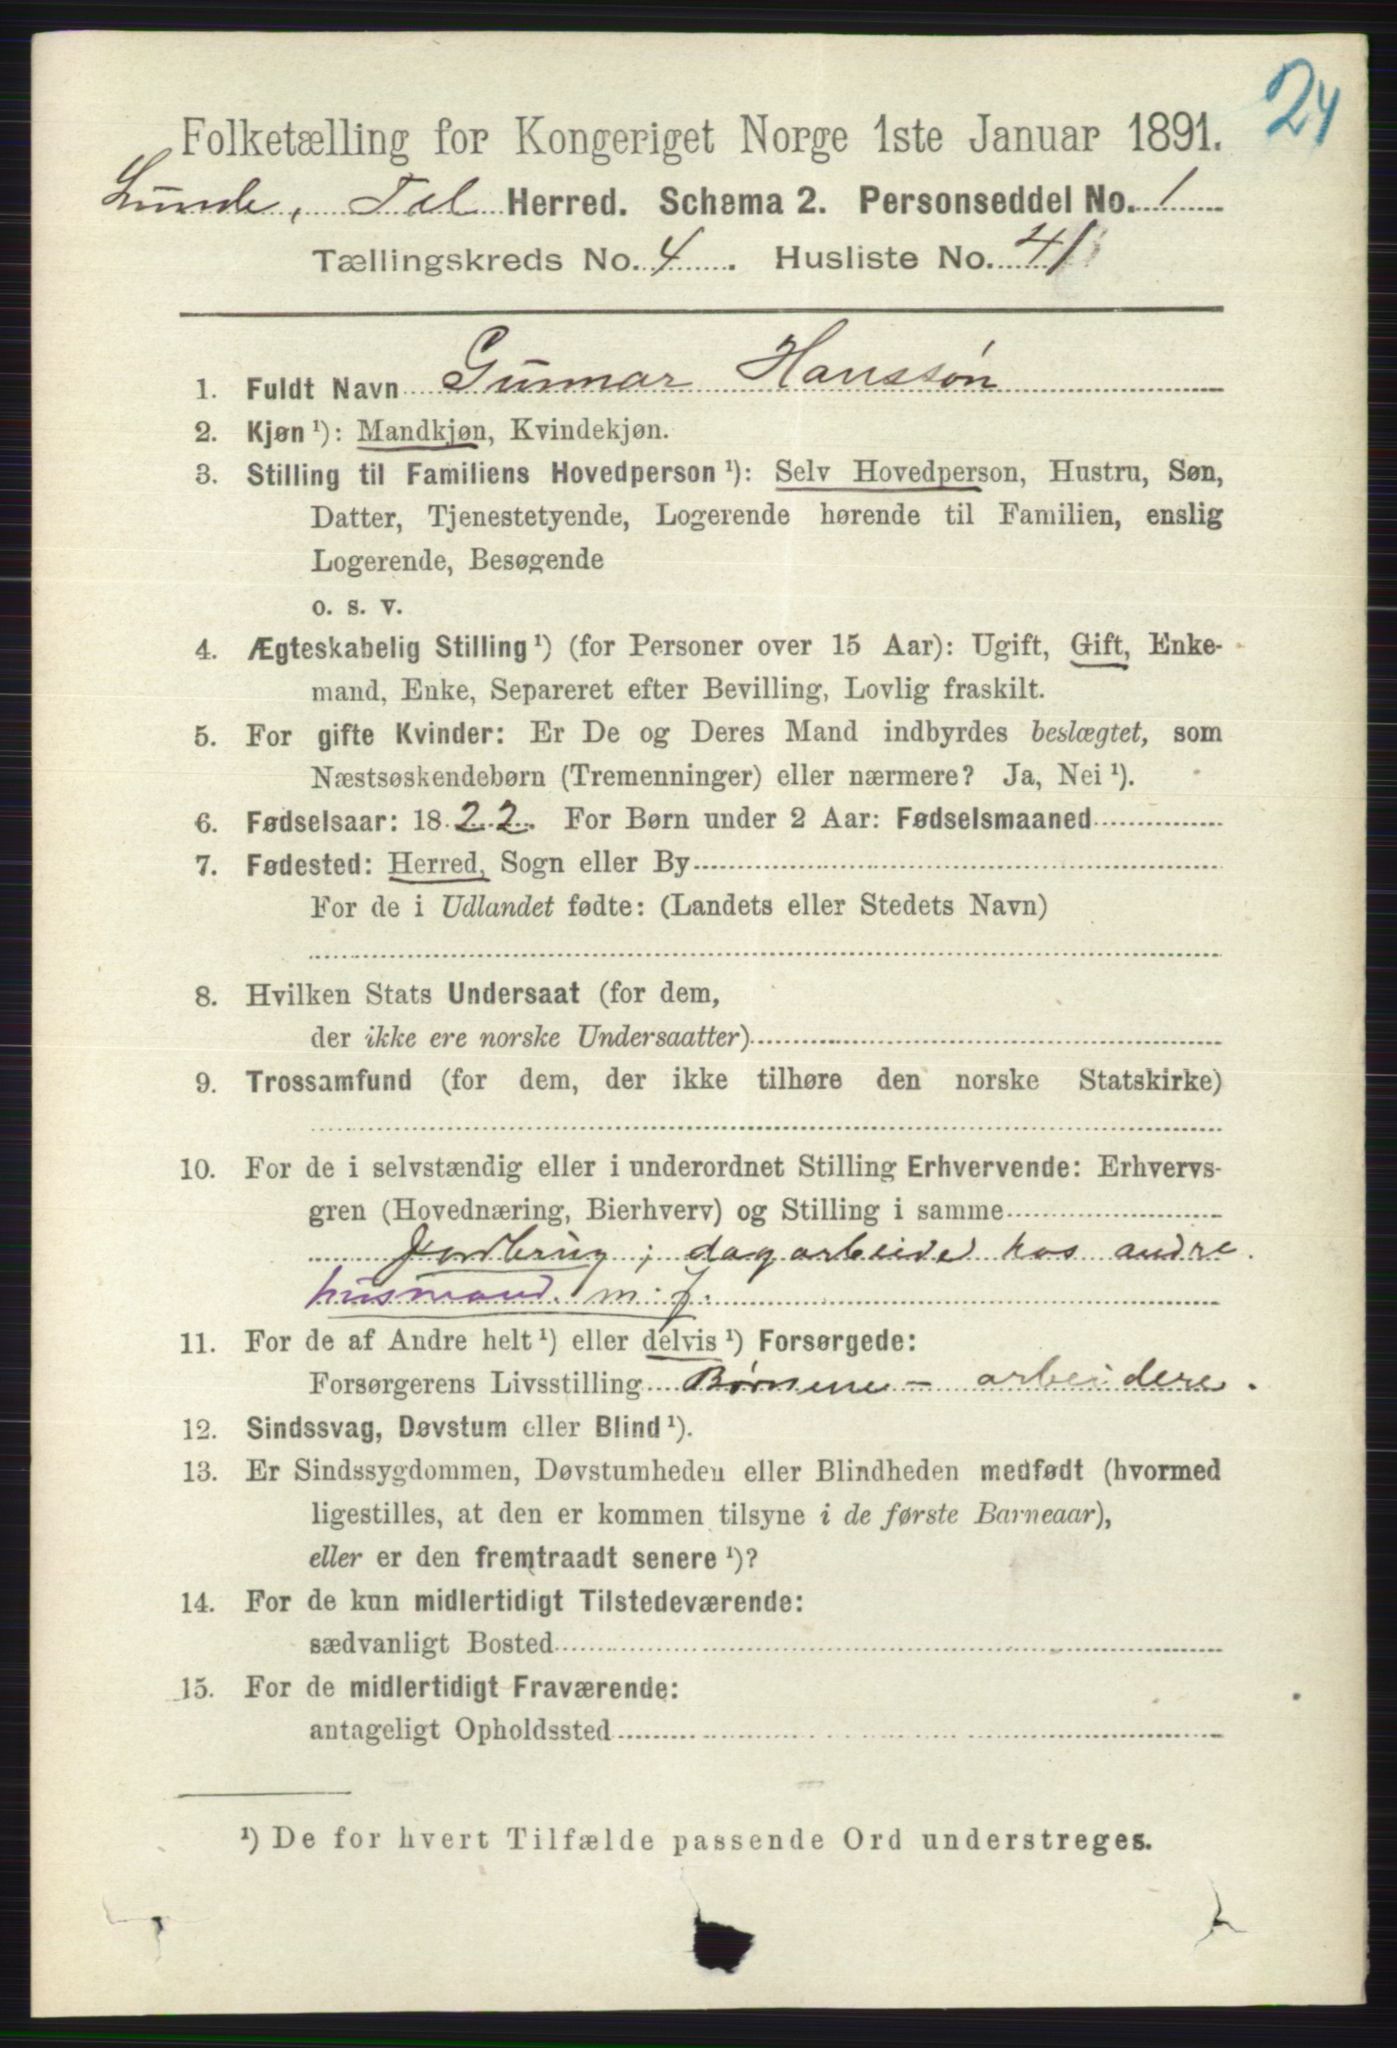 24
Folketælling for Kongeriget Norge 1ste Januar 1891.
Lunde, Tel Herred. Schema 2. Personseddel No. 1
Tællingskreds No. 4. Husliste No. 41
1. Fuldt Navn Gunnar Hanssøn
2. Kjøn ¹): Mandkjøn, Kvindekjøn.
3. Stilling til Familiens Hovedperson ¹): Selv Hovedperson, Hustru, Søn,
Datter, Tjenestetyende, Logerende hørende til Familien, enslig
Logerende, Besøgende
o. s. v.
4. Ægteskabelig Stilling ¹) (for Personer over 15 Aar): Ugift, Gift, Enke-
mand, Enke, Separeret efter Bevilling, Lovlig fraskilt.
5. For gifte Kvinder: Er De og Deres Mand indbyrdes beslægtet, som
Næstsøskendebørn (Tremenninger) eller nærmere? Ja, Nei ¹).
6. Fødselsaar: 1822. For Børn under 2 Aar: Fødselsmaaned
7. Fødested: Herred, Sogn eller By
For de i Udlandet fødte: (Landets eller Stedets Navn)
8. Hvilken Stats Undersaat (for dem,
der ikke ere norske Undersaatter)
9. Trossamfund (for dem, der ikke tilhøre den norske Statskirke)
10. For de i selvstændig eller i underordnet Stilling Erhvervende: Erhvervs-
gren (Hovednæring, Bierhverv) og Stilling i samme
Jordbrug; dagarbeide hos andre.
husmand m. j.
11. For de af Andre helt ¹) eller delvis ¹) Forsørgede:
Forsørgerens Livsstilling Børnene - arbeidere.
12. Sindssvag, Døvstum eller Blind ¹).
13. Er Sindssygdommen, Døvstumheden eller Blindheden medfødt (hvormed
ligestilles, at den er kommen tilsyne i de første Barneaar),
eller er den fremtraadt senere ¹)?
14. For de kun midlertidigt Tilstedeværende:
sædvanligt Bosted
15. For de midlertidigt Fraværende:
antageligt Opholdssted
¹) De for hvert Tilfælde passende Ord understreges.